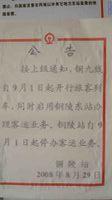 公告
接上级通知，铜九线
自9月1日起开行旅客列
车，同时启用铜陵东站办
理客运业务，铜陵站自
9月1日起停办客运业务。
铜陵站
2008年8月29日